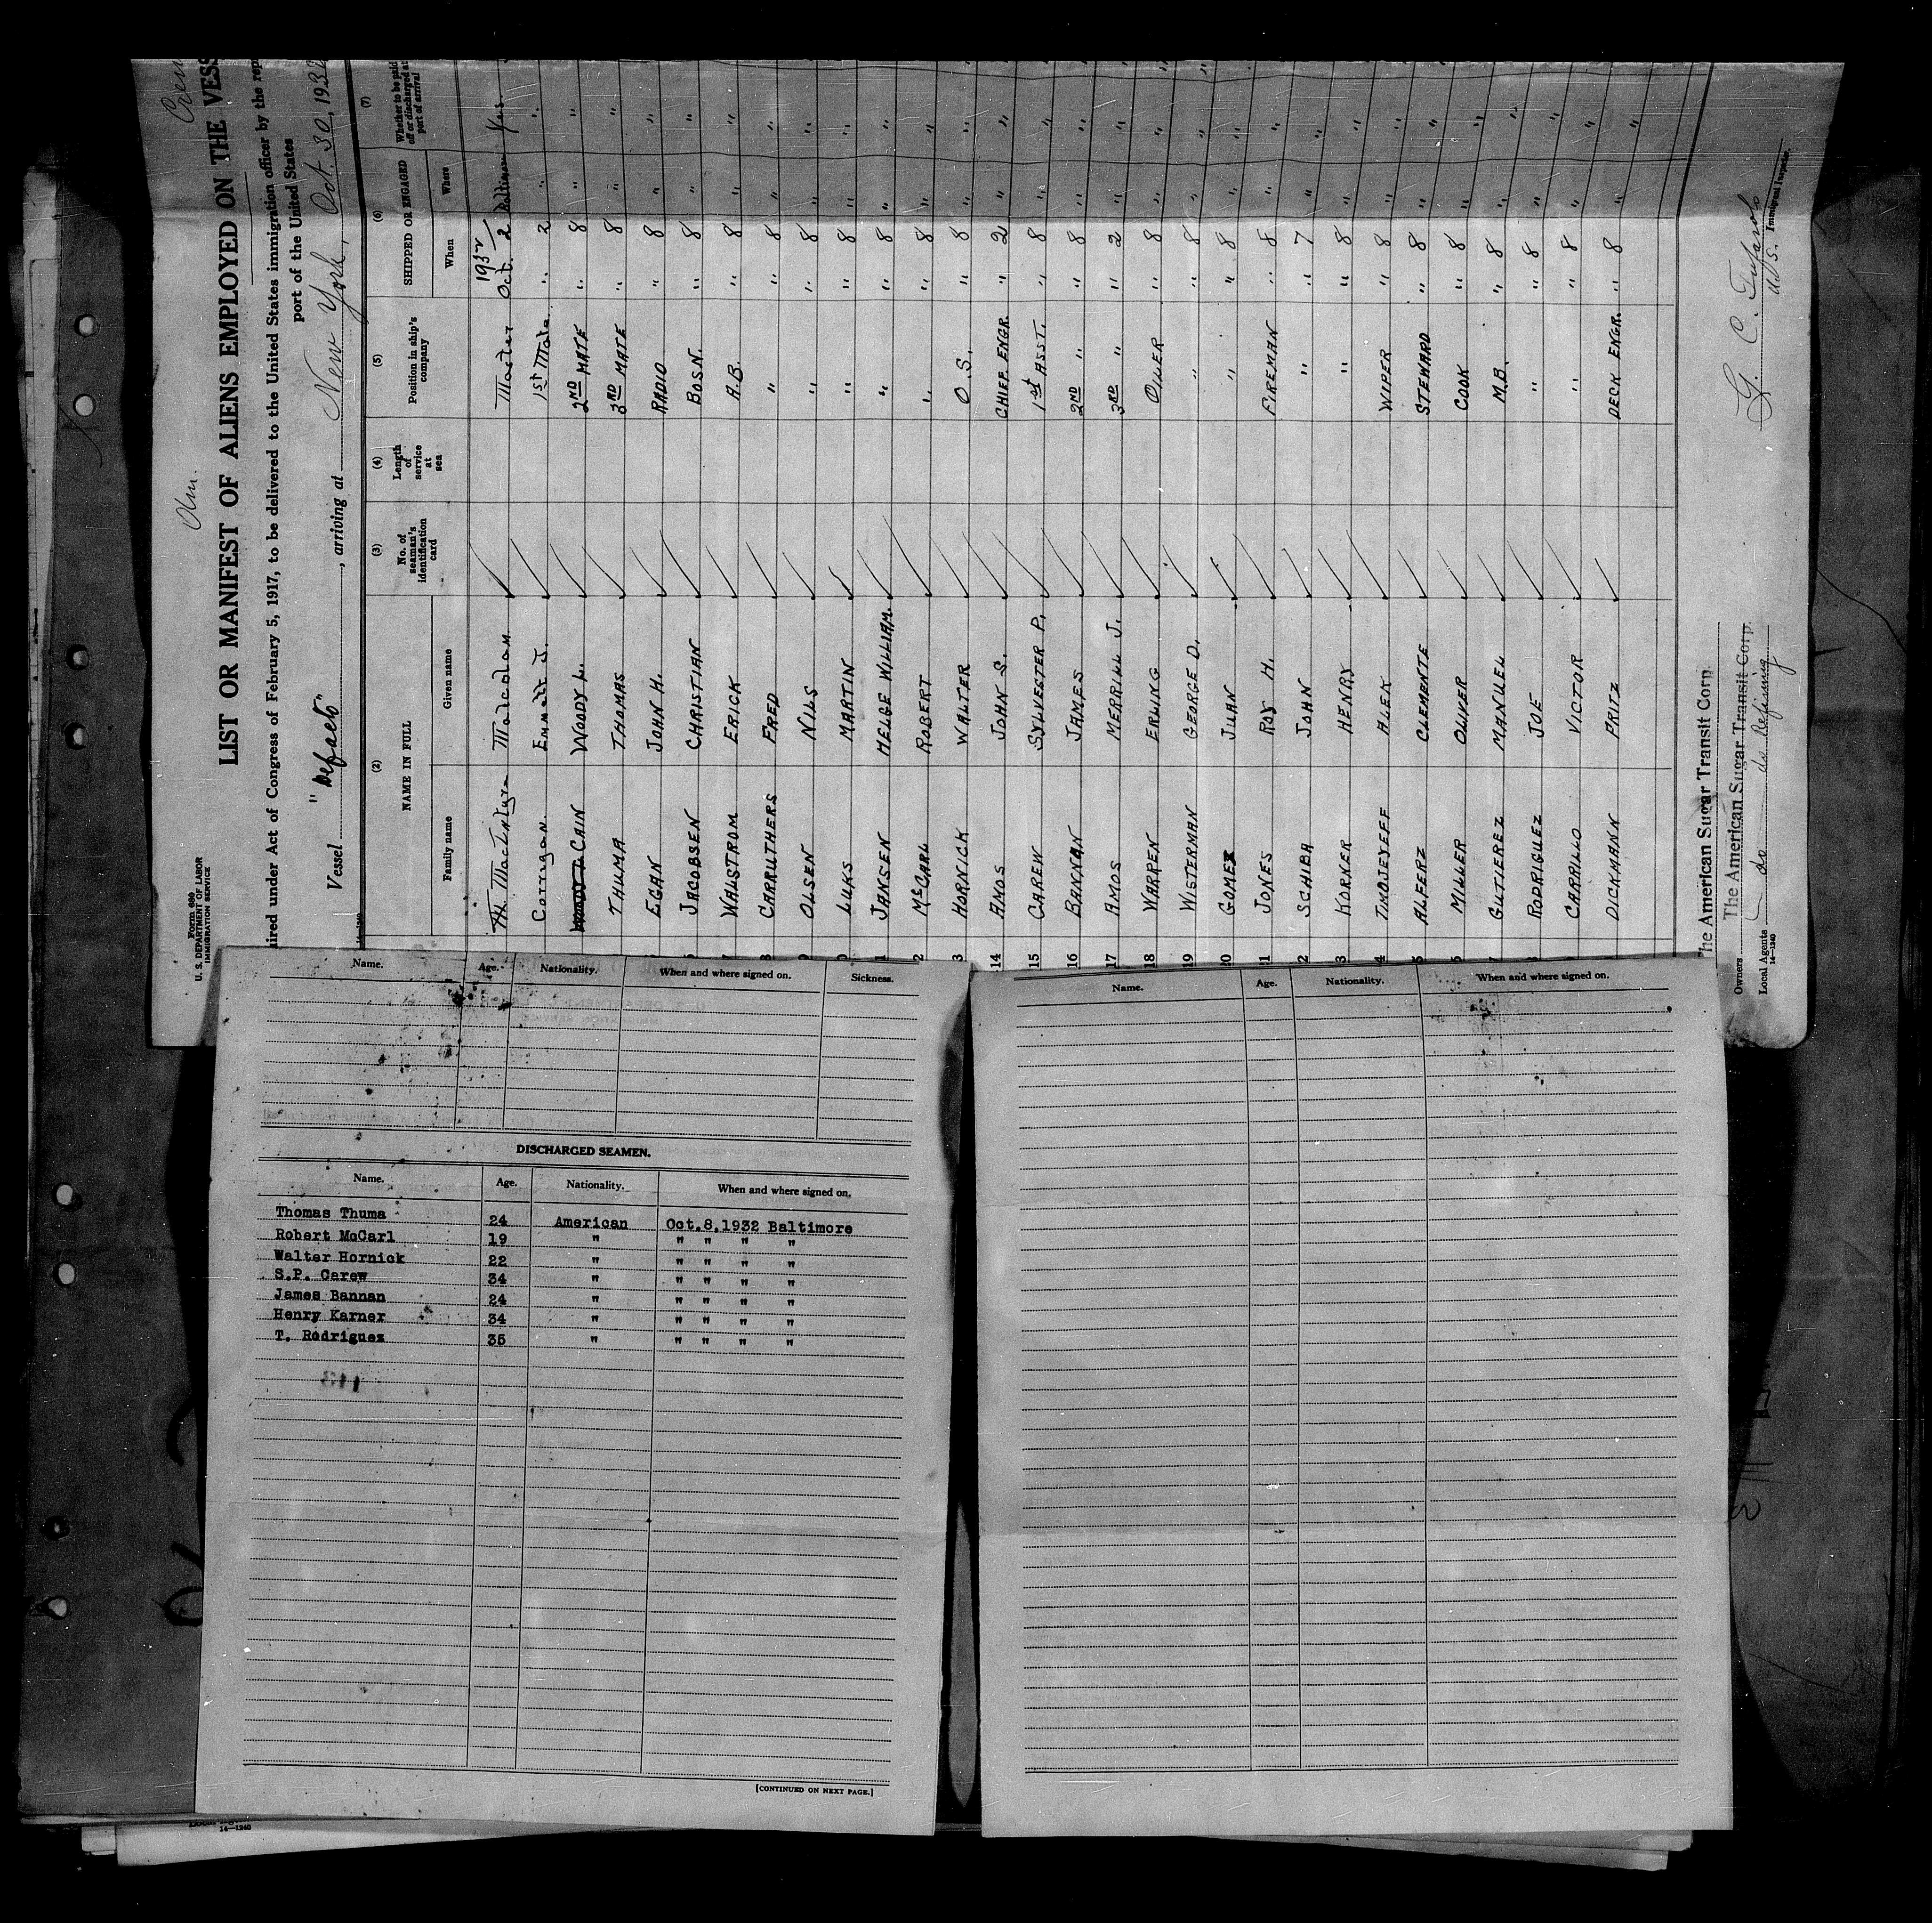 Form 680
U. S. DEPARTMENT OF LABOR
IMMIGRATION SERVICE
Crew
LIST OR MANIFEST OF ALIENS EMPLOYED ON THE VESS
ired under Act of Congress of February 5, 1917, to be delivered to the United States immigration officer by the rep
port of the United States
Vessel "Defacto", arriving at New York, Oct. 30, 1932
(2) (3) (4) (5) (6) (7)
NAME IN FULL No. of seaman's identification card Length of service at sea Position in ship's company SHIPPED OR ENGAGED Whether to be paid off or discharged at port of arrival
Family name Given name When Where
MacIntyre Malcolm Master 1932 Oct. 2 Baltimore Yes.
Corrigan Emmett J. 1st Mate " 2 " "
CAIN WOODY L. 2ND MATE " 8 " "
THUMA THOMAS 3RD MATE " 8 " "
EGAN JOHN H. RADIO " 8 " "
JACOBSEN CHRISTIAN BOSN. " 8 " "
WALSTROM ERICK A.B. " 8 " "
CARRUTHERS FRED " " 8 " "
OLSEN NILS " " 8 " "
LUKS MARTIN " " 8 " "
JANSEN HELGE WILLIAM. " " 8 " "
McCARL ROBERT " " 8 " "
HORNICK WALTER O.S. " 8 " "
14 AMOS JOHN S. CHIEF ENGR. " 2 " "
15 CAREW SYLVESTER P. 1st ASST. " 8 " "
16 BANNAN JAMES 2ND " " 8 " "
17 AMOS MERRILL J. 3RD " " 2 " "
18 WARREN ERLING OILER " 8 " "
19 WISTERMAN GEORGE D. " " 8 " "
20 GOMEZ JUAN " " 8 " "
JONES ROY H. FIREMAN " 8 " "
SCHIBA JOHN " " 7 " "
KORNER HENRY " " 8 " "
TIMOJEYEFF ALEK WIPER " 8 " "
ALEEPZ CLEMENTE STEWARD " 8 " "
MILLER OLIVER COOK " 8 " "
GUTIEREZ MANUEL M.B. " 8 " "
RODRIGUEZ JOE " " 8 " "
CARRILLO VICTOR " " 8 " "
DICKMANN FRITZ DECK ENGR. " 8 " "
he American Sugar Transit Corp.
Owners The American Sugar Transit Corp.
Local Agents do do Refining
14—1240
G. C.
U.S. Immigrant Inspector.
Name. Age. Nationality. When and where signed on. Sickness.
DISCHARGED SEAMEN.
Name. Age. Nationality. When and where signed on.
Thomas Thuma 24 American Oct.8.1932 Baltimore
Robert McCarl 19 " " " " "
Walter Hornick 22 " " " " "
S.P. Carew 34 " " " " "
James Bannan 24 " " " " "
Henry Karner 34 " " " " "
T. Rodriguez 35 " " " " "
[CONTINUED ON NEXT PAGE.]
Name. Age. Nationality. When and where signed on.
14—1240